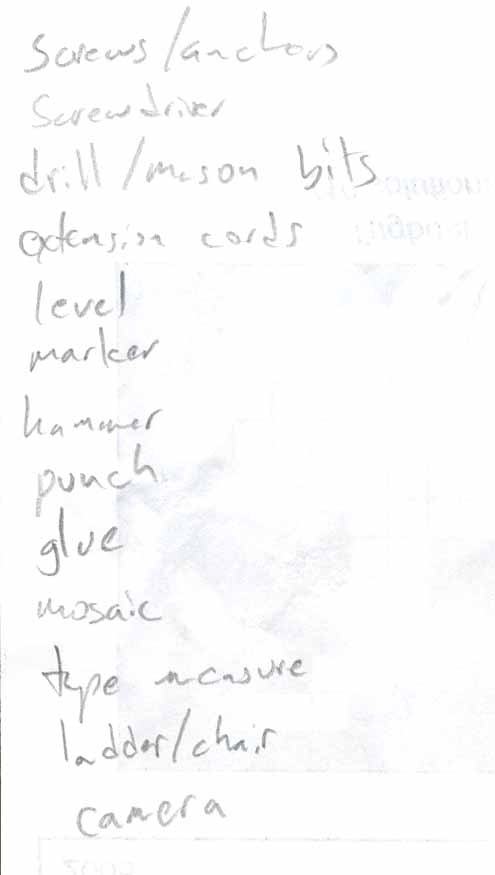 screws/anchors
Screwdriver
drill/mason bits
extension cords
level
marker
hammer
punch
glue
mosaic
type measure
ladder/chair
camera